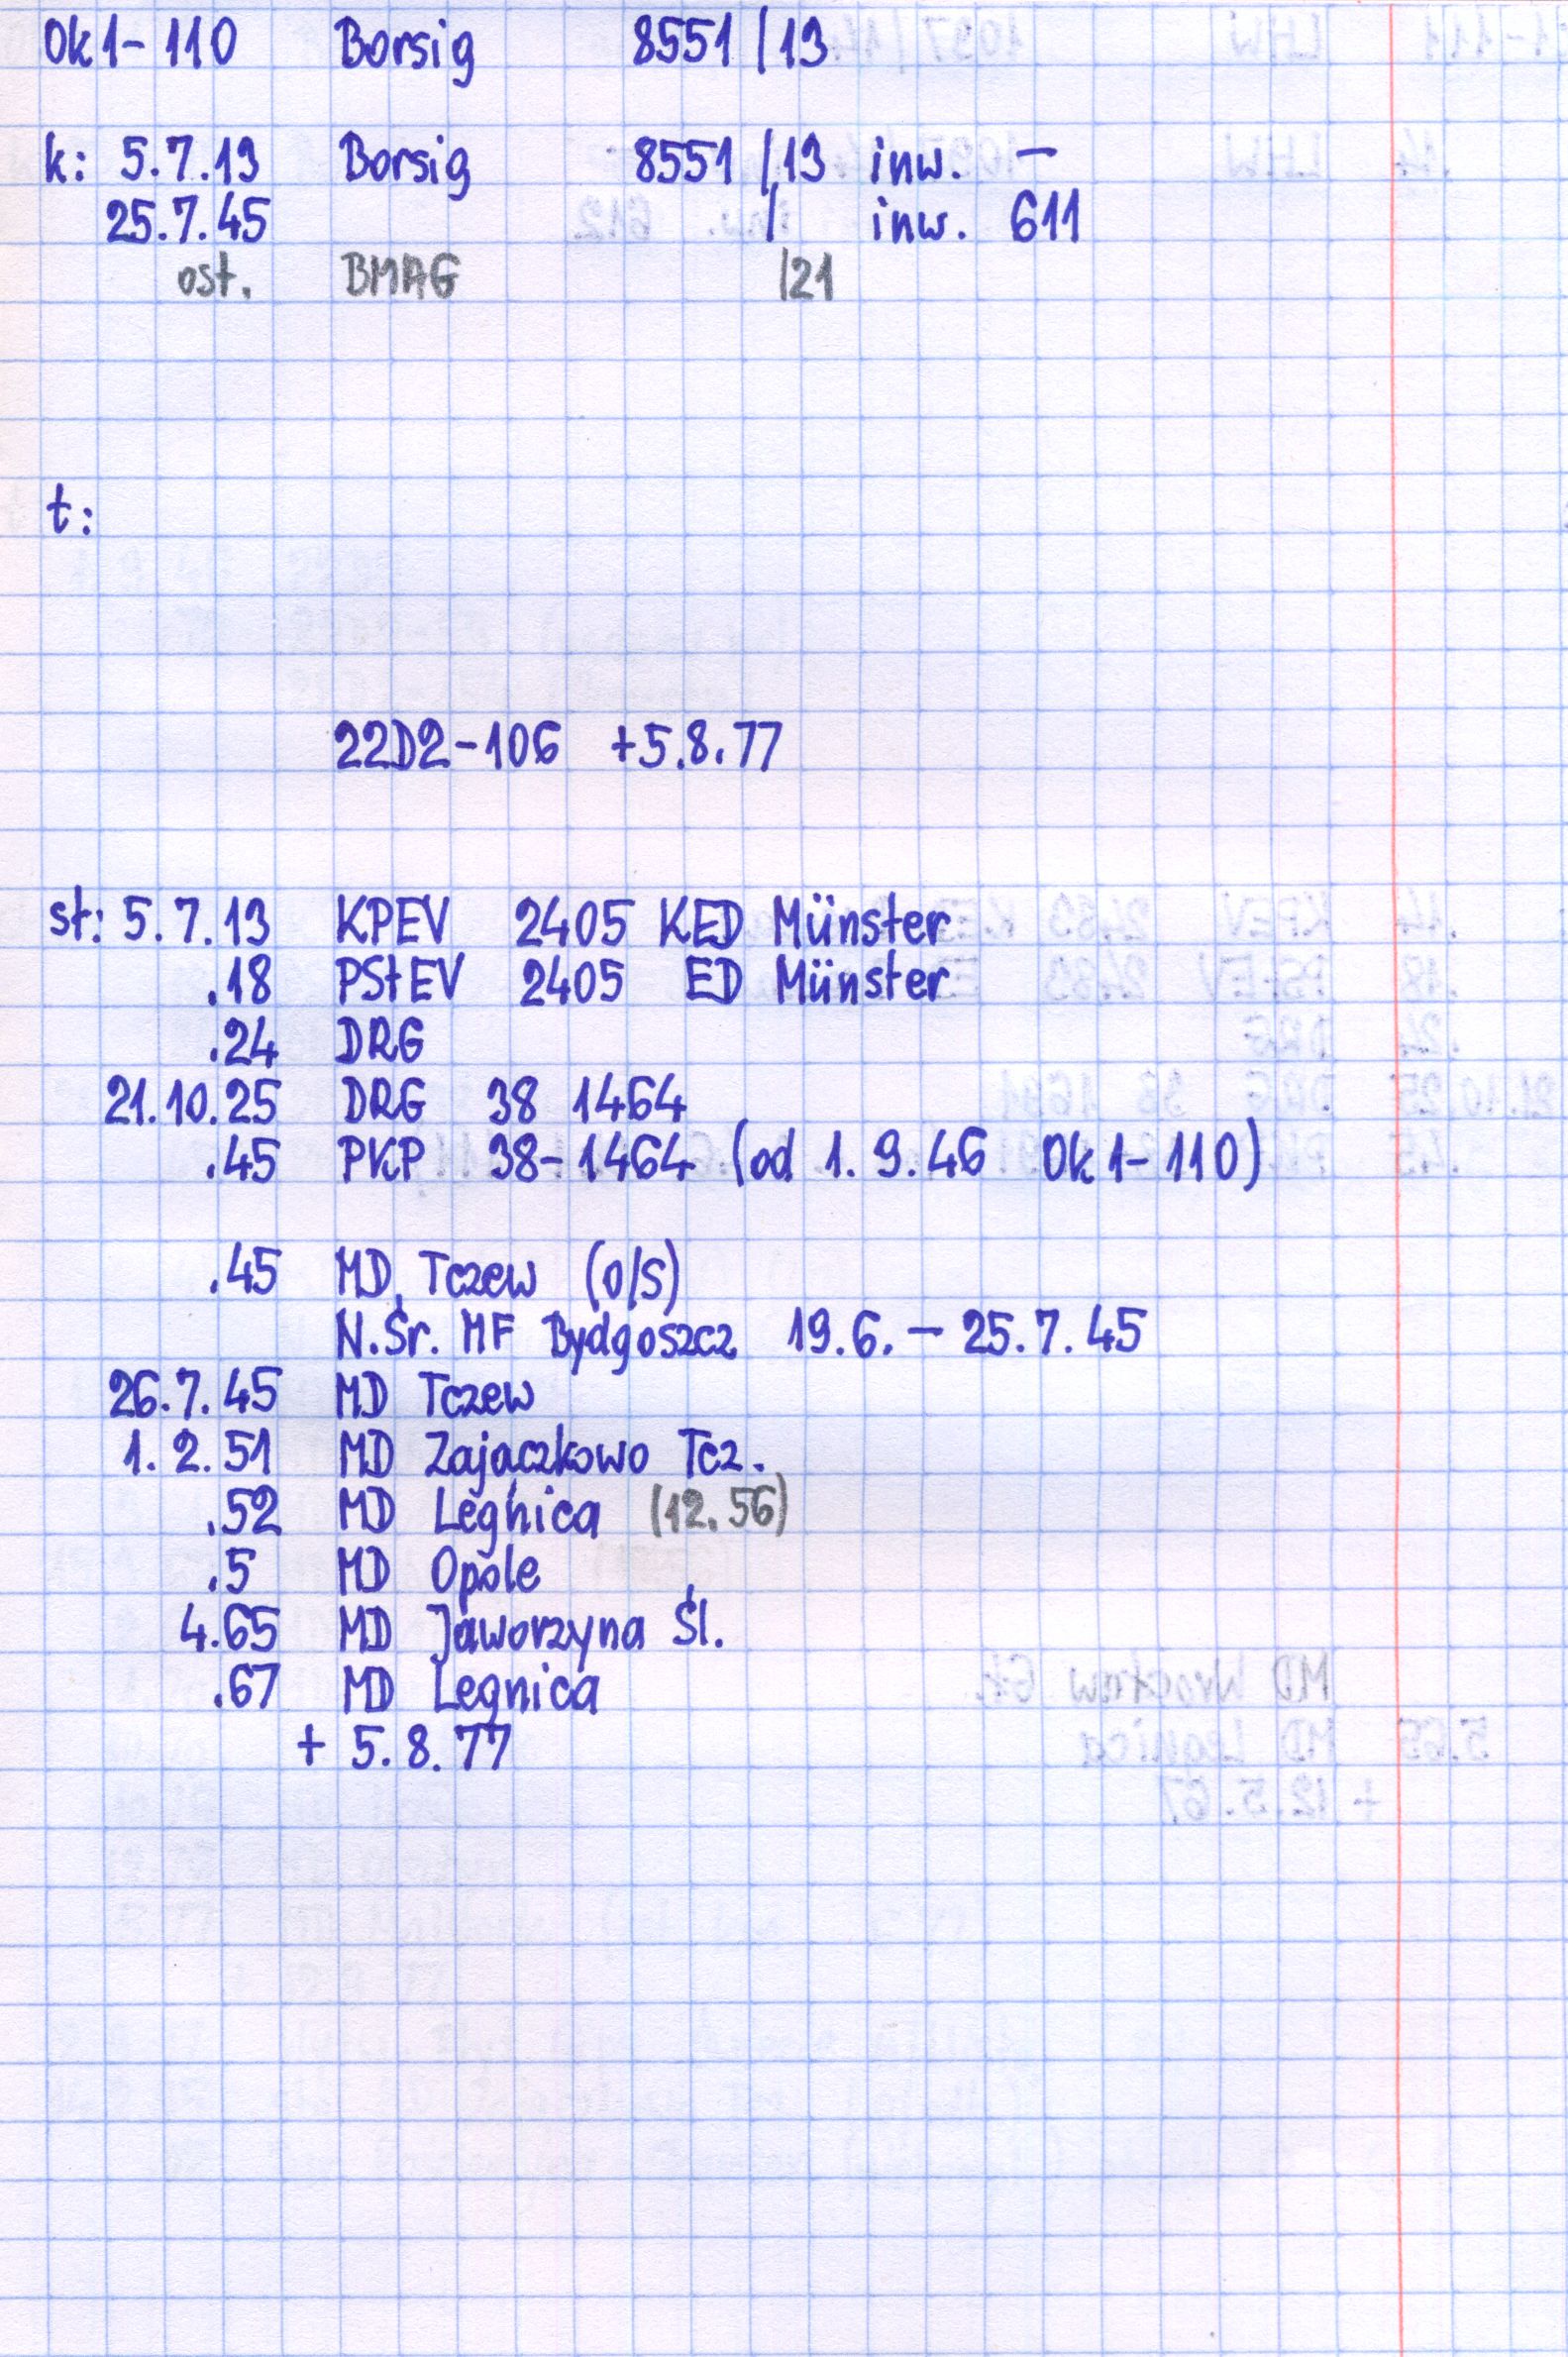 Ok1-110 Borsig 8551/13
k: 5.7.13 Borsig 8551/13 inw. –
25.7.45 / inw. 611
ost. BMAG /21
t:
22D2-106 +5.8.77
st: 5.7.13 KPEV 2405 KED Münster
.18 PStEV 2405 ED Münster
.24 DRG
21.10.25 DRG 38 1464
.45 PKP 38-1464 (od 1.9.46 Ok1-110)
.45 MD Tczew (o/s)
N.Śr. MF Bydgoszcz 19.6. – 25.7.45
26.7.45 MD Tczew
1.2.51 MD Zajączkowo Tcz.
.52 MD Legnica (12.56)
.5 MD Opole
4.65 MD Jaworzyna Śl.
.67 MD Legnica
+ 5.8.77